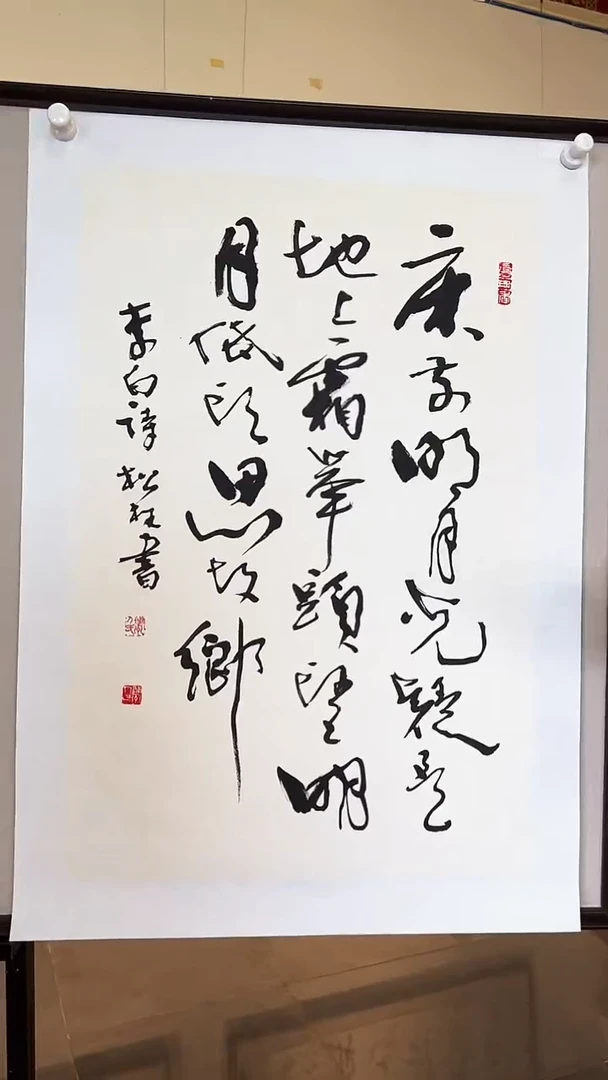 床前明月光疑是
地上霜举頭望明
月低头思故鄉
李白詩 松柱書